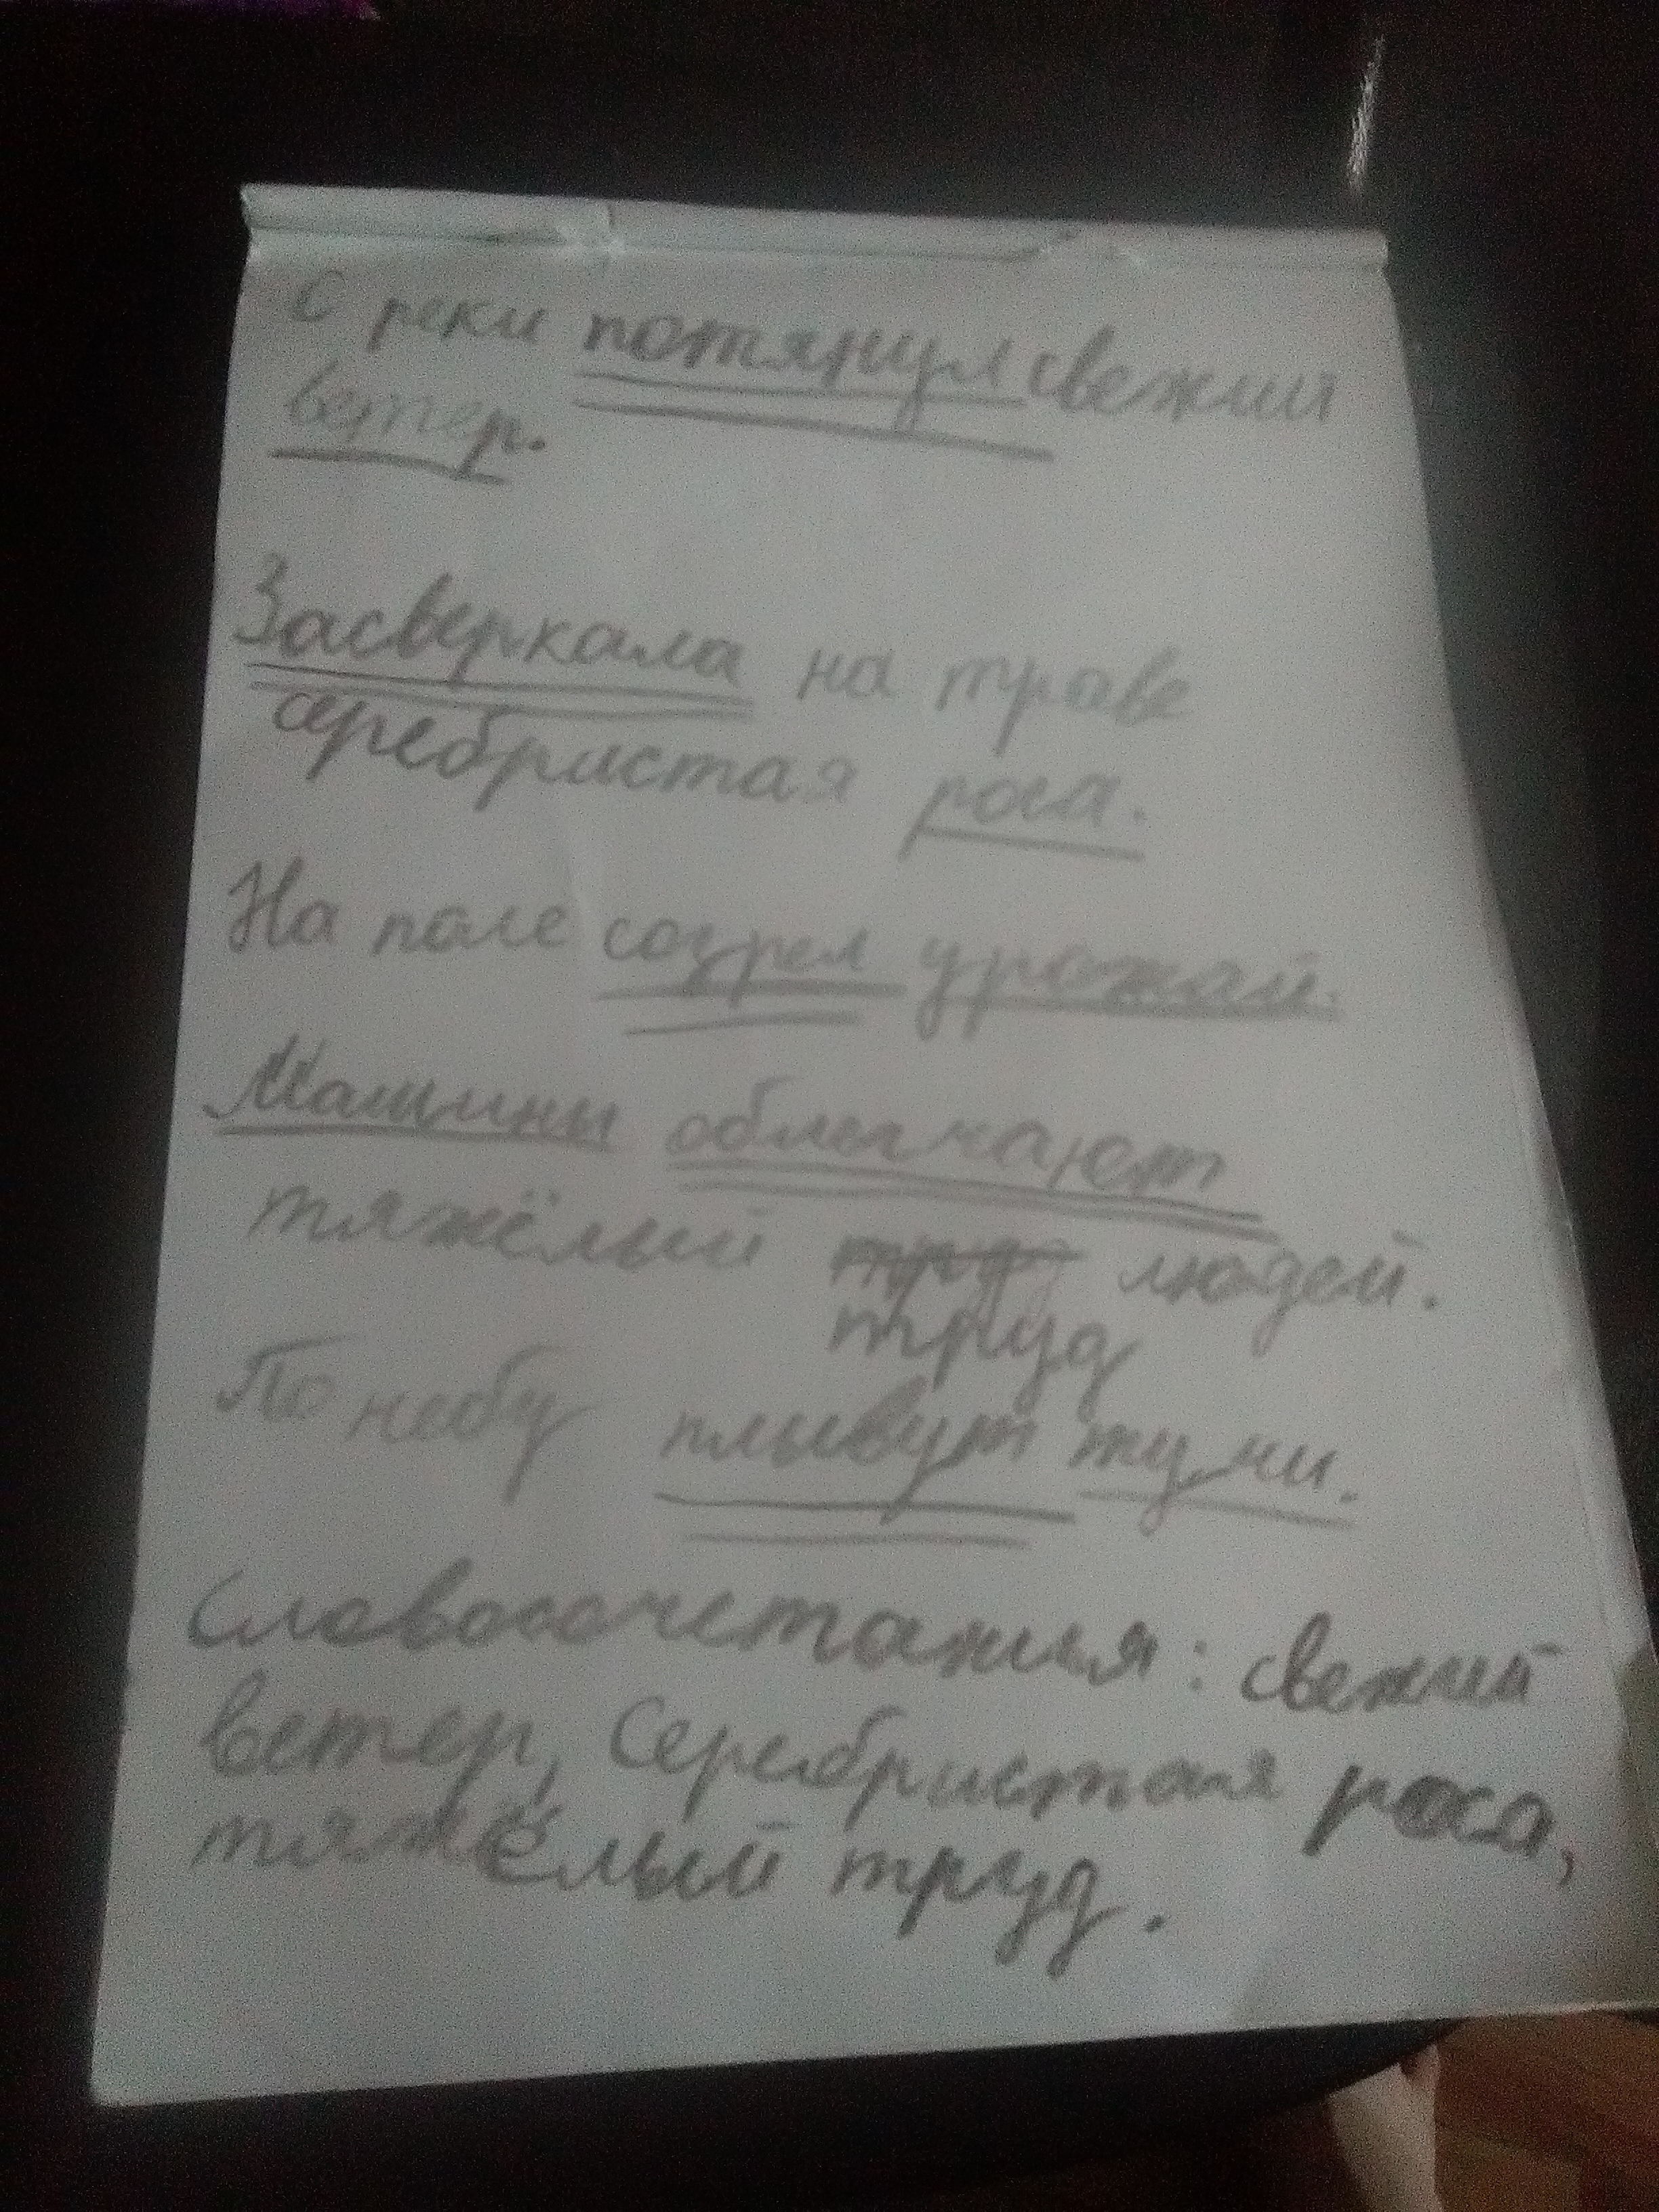 С реки потянул свежий
ветер.
Засверкала на траве
серебристая роса.
На поле созрел урожай.
Машины облегчают
тяжёлый труд людей.
труд
По небу плывут тучи.
Словосочетанья: свежий
ветер, Серебристая роса,
тяжёлый труд.